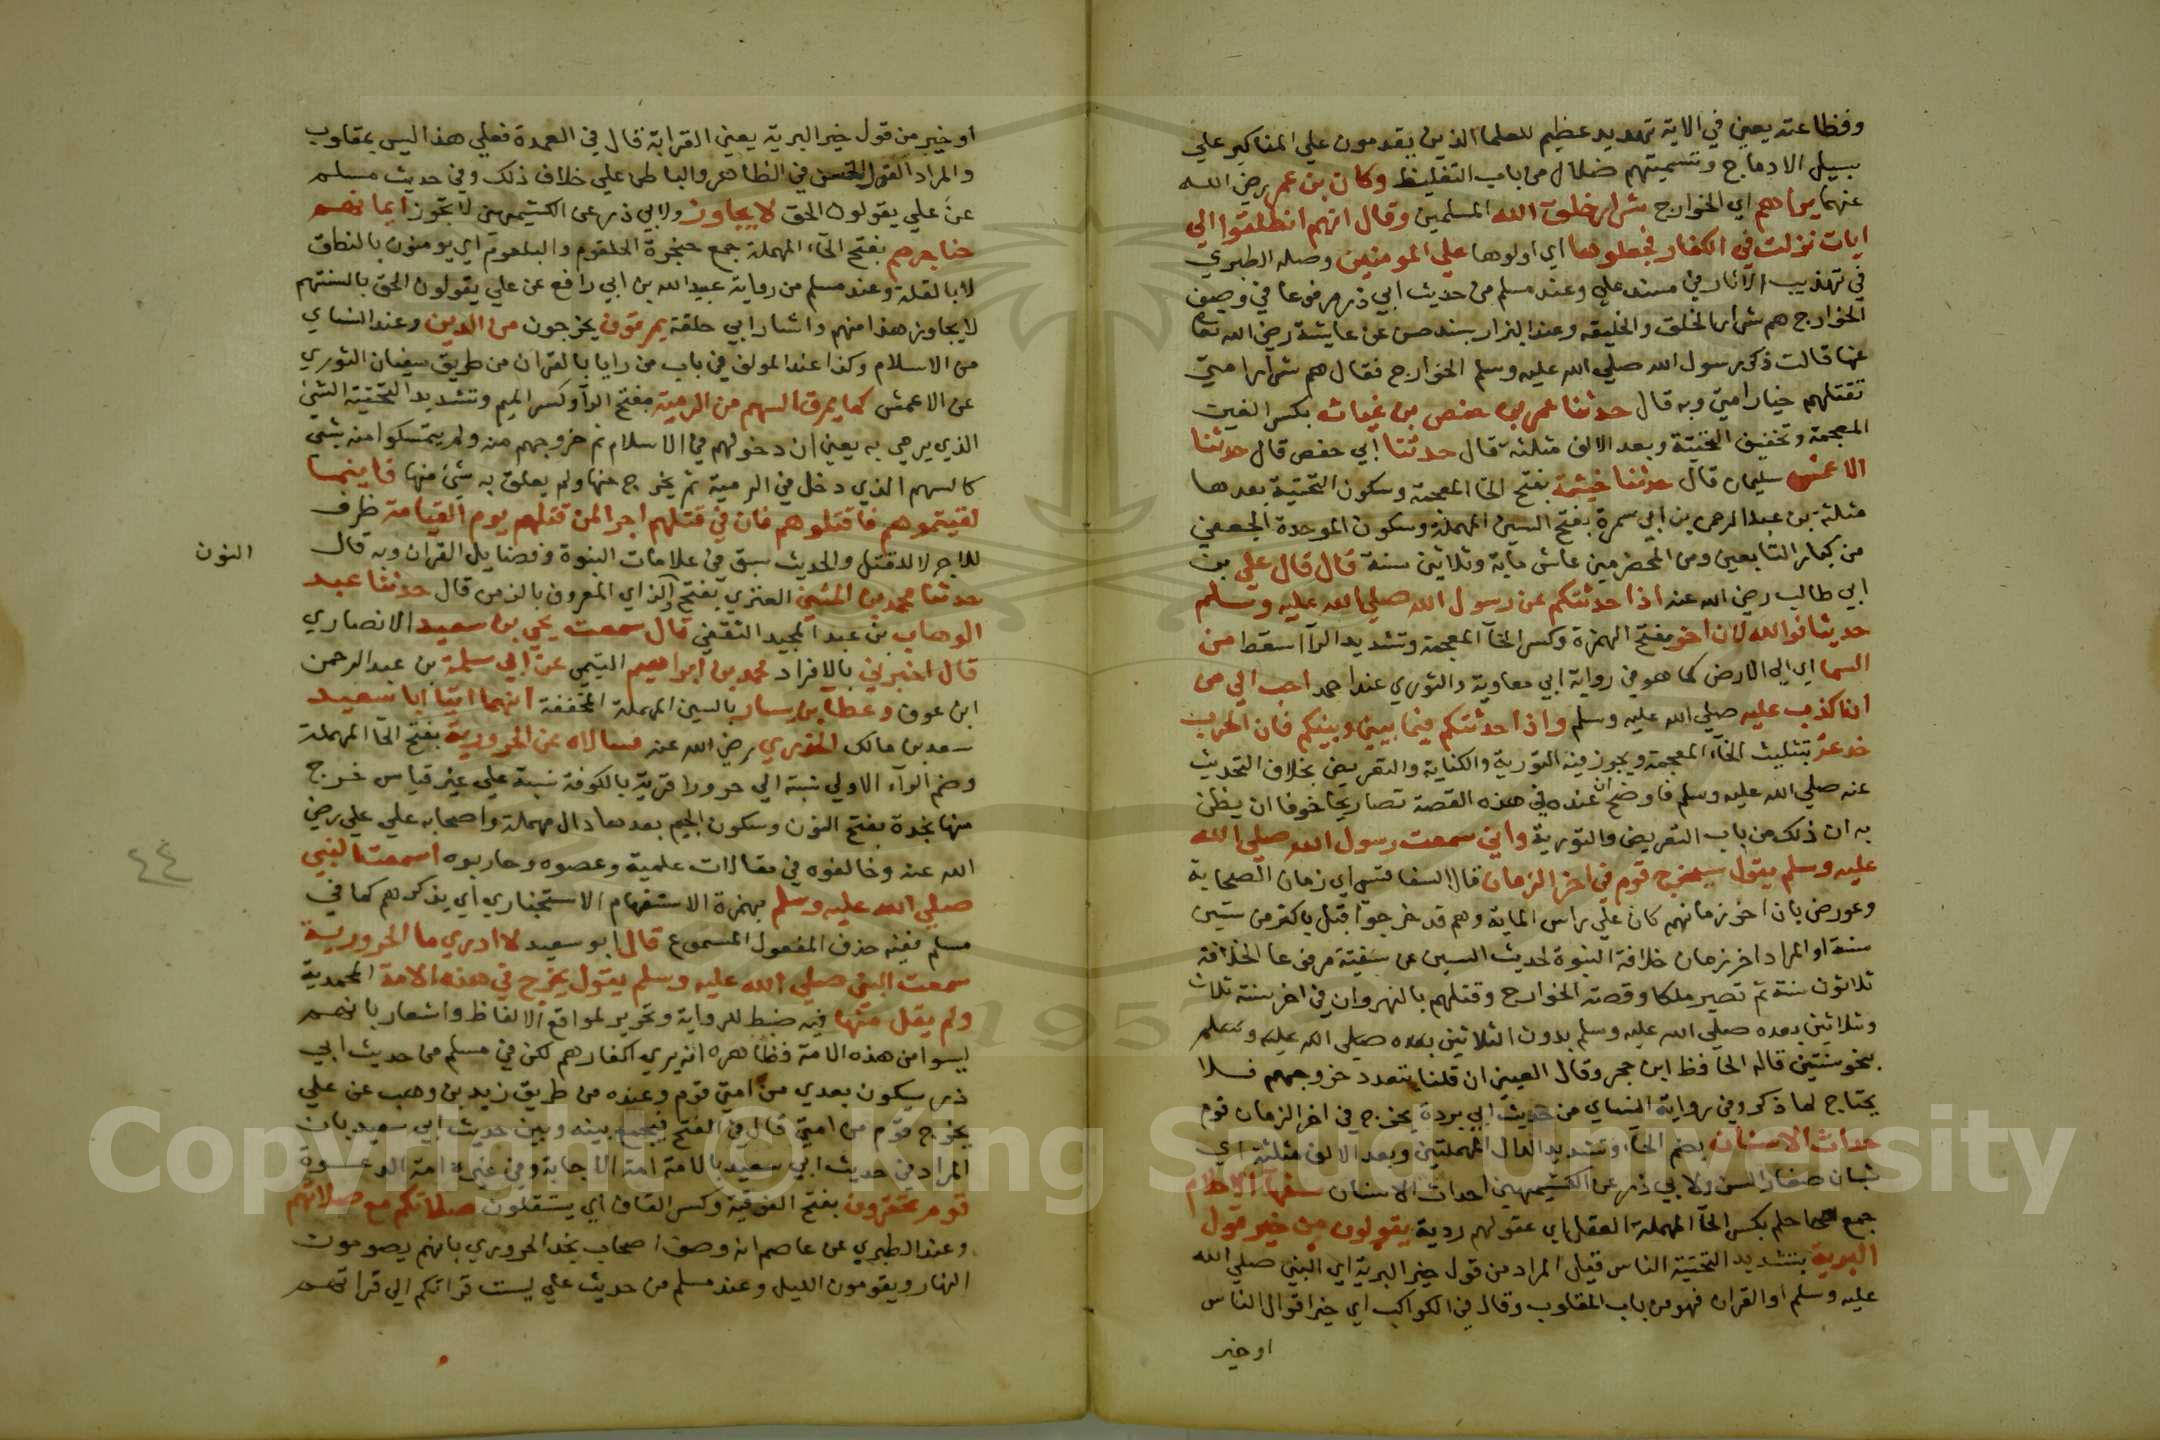 وفظاعته يعني في الاية تهديد عظيم للعلما الذين يقدمون علي المناكير علي
سبيل الادماج وتسميتهم ضلال من باب التغليظ وكان بن عمر رضي الله
عنهما يراهم اي الخوارج شرار خلق الله المسلمين وقال انهم انطلقوا الي
ايات نزلت في الكفار فجعلوها اي اولوها علي المومنين وصله الطبري
في تهذيب الآثار في مسند علي وعند مسلم من حديث ابي ذر مرفوعا في وصف
الخوارج هم شرار الخلق والخليقه وعند البزار بسند حسن عن عايشة رضي الله تعالى
عنها قالت ذكر رسول الله صلي الله عليه وسلم الخوارج فقال هم شرار امتي
تقتلهم خيار امتي وبه قال حدثنا عمر بن حفص بن غياث بكسر الغين
المعجمة وتخفيف التحتية وبعد الالف مثلثة قال حدثنا ابي حفص قال حدثنا
الاعمش سليمان قال حدثنا خيثمة بفتح الخا المعجمة وسكون التحتية بعدها
مثلثة بن عبد الرحمن بن ابي سمرة بفتح السين المهملة وسكون الموحدة الجعفي
من كبار التابعين ومن المخضرمين عاش ماية وثلاثين سنة قال قال علي بن
ابي طالب رضي الله عنه اذا حدثتكم عن رسول الله صلي الله عليه وسلم
حديثا فوالله لان اخر بفتح الهمزة وكسر الخآ المعجمة وتشديد الرآ اسقط من
السما اي الي الارض كما هو في رواية ابي معاوية والثوري عند احمد احب الي من
ان اكذب عليه صلي الله عليه وسلم واذا حدثتكم فيما بيني وبينكم فان الحرب
خدعة بتثليث الخآء المعجمة ويجوز فيه التورية والكناية والتعريض بخلاف التحديث
عنه صلي الله عليه وسلم فاوضح ان عنده في هذه القصة تصاريحا خوفا ان يظن
به ان ذلك من باب التعريض والتورية واني سمعت رسول الله صلي الله
عليه وسلم يقول سيخرج قوم في اخر الزمان قال السفاقسي اي زمان الصحابة
وعورض بان اخر زمانهم كان علي راس الماية وهم قد خرجوا قبل باكثر من ستين
سنة او المراد اخر زمان خلافة النبوة لحديث السنن عن سفينة مرفوعا الخلافة
ثلاثون سنة ثم تصير ملكا وقصة الخوارج وقتلهم بالنهروان في اخر سنة ثلاث
وثلاثين بعده صلي الله عليه وسلم بدون الثلاثين بعده صلي الله عليه وسلم
بنحو سنتين قاله الحافظ ابن حجر وقال العيني ان قلنا بتعدد خروجهم فلا
يحتاج لما ذكر وفي رواية النساي من حديث ابي بردة يخرج في اخر الزمان قوم
حداث الاسنان بضم الحآء وتشديد الدال المهملتين وبعد الالف مثلثة اي
شبان صغار السن ولابي ذر عن الكشيمهيني احداث الاسنان سفهآ الاحلام
جمع حلم بكسر الحآ المهملة العقل اي عقولهم ردية يقولون من خير قول
البرية بتشديد التحتية الناس قيل المراد من قول خير البرية اي النبي صلي الله
عليه وسلم او القران فهو من باب المقلوب وقال في الكواكب اي خير اقوال الناس
او خير
او خير من قول خير البرية يعني القرابة قال في العمدة فعلي هذا ليس بمقلوب
والمراد القول الحسن في الظاهر والباطن علي خلاف ذلك وفي حديث مسلم
عن علي يقولون الحق لا يجاوز ولابي ذر عن الكشيمهني لا تجوز ايمانهم
حناجرهم بفتح الحآء المهملة جمع حنجرة الحلقوم والبلعوم اي يومنون بالنطق
لا بالقلة وعند مسلم من رواية عبيد الله بن ابي رافع عن علي يقولون الحق بالسنتهم
لا يجاوز هذا منهم واشار الي حلقه يمرقون يخرجون من الدين وعند النساي
من الاسلام وكذا عند المولف في باب من رايا بالقران من طريق سفيان الثوري
عن الاعمش كما يمرق السهم من الرمية بفتح الرآ وكسر الميم وتشديد التحتية الشي
الذي يرمي به يعني ان دخولهم في الاسلام ثم خروجهم منه ولم يتمسكوا منه بشي
كالسهم الذي دخل في الرمية ثم يخرج منها ولم يعلق به شي منها فاينما
لقيتموهم فاقتلوهم فان في قتلهم اجر المن قتلهم يوم القيامة ظرف
للاجر لا للقتل والحديث سبق في علامات النبوة وفضايل القران وبه قال
النون
حدثنا محمد بن المثني العنزي بفتح والزاي المعروف بالزمن قال حدثنا عبد
الوهاب بن عبد المجيد الثقفي قال سمعت يحي بن سعيد الانصاري
قال اخبرني بالافراد محمد بن ابراهيم التيمي عن ابي سلمة بن عبد الرحمن
ابن عوف وعطا بن يسار بالسين المهملة المخففة انهما اتيا ابا سعيد
سعد بن مالك الخدري رضي الله عنه فسالاه عن الحرورية بفتح الحآ المهملة
وضم الرآء الاولي نسبة الي حرورا قرية بالكوفة نسبة علي غير قياس خرج
منها نجدة بفتح النون وسكون الجيم بعدها دال مهملة واصحابه علي علي رضي
الله عنه وخالفوه في مقالات علمية وعصوه وحاربوه اسمعت النبي
صلي الله عليه وسلم بهمزة الاستفهام الاستخباري اي يذكرهم كما في
مسلم ففيه حذف المفعول المسموع قال ابو سعيد لا ادري ما الحرورية
سمعت النبي صلي الله عليه وسلم يقول يخرج في هذه الامة المحمدية
ولم يقل منها فيه ضبط للرواية وتحرير لمواقع الالفاظ واشعار بانهم
ليسوا من هذه الامة فظاهره انه يري اكفارهم لكن في مسلم من حديث ابي
ذر سيكون بعدي من امتي قوم وعنده من طريق زيد بن وهب عن علي
يخرج قوم من امتي قال في الفتح فيجمع بينه وبين حديث ابي سعيد بان
المراد في حديث ابي سعيد بالامة امة الاجابة وفي غيره امة الدعوة
قوم تحقرون بفتح الفوقية وكسر القاف اي يستقلون صلاتكم مع صلاتهم
وعند الطبري عن عاصم انه وصف اصحاب نجد الحروري بانهم يصومون
النهار ويقومون الليل وعند مسلم من حديث علي ليست قراتكم الي قراتهم
٤٤
Copyright © King Saud University
1957